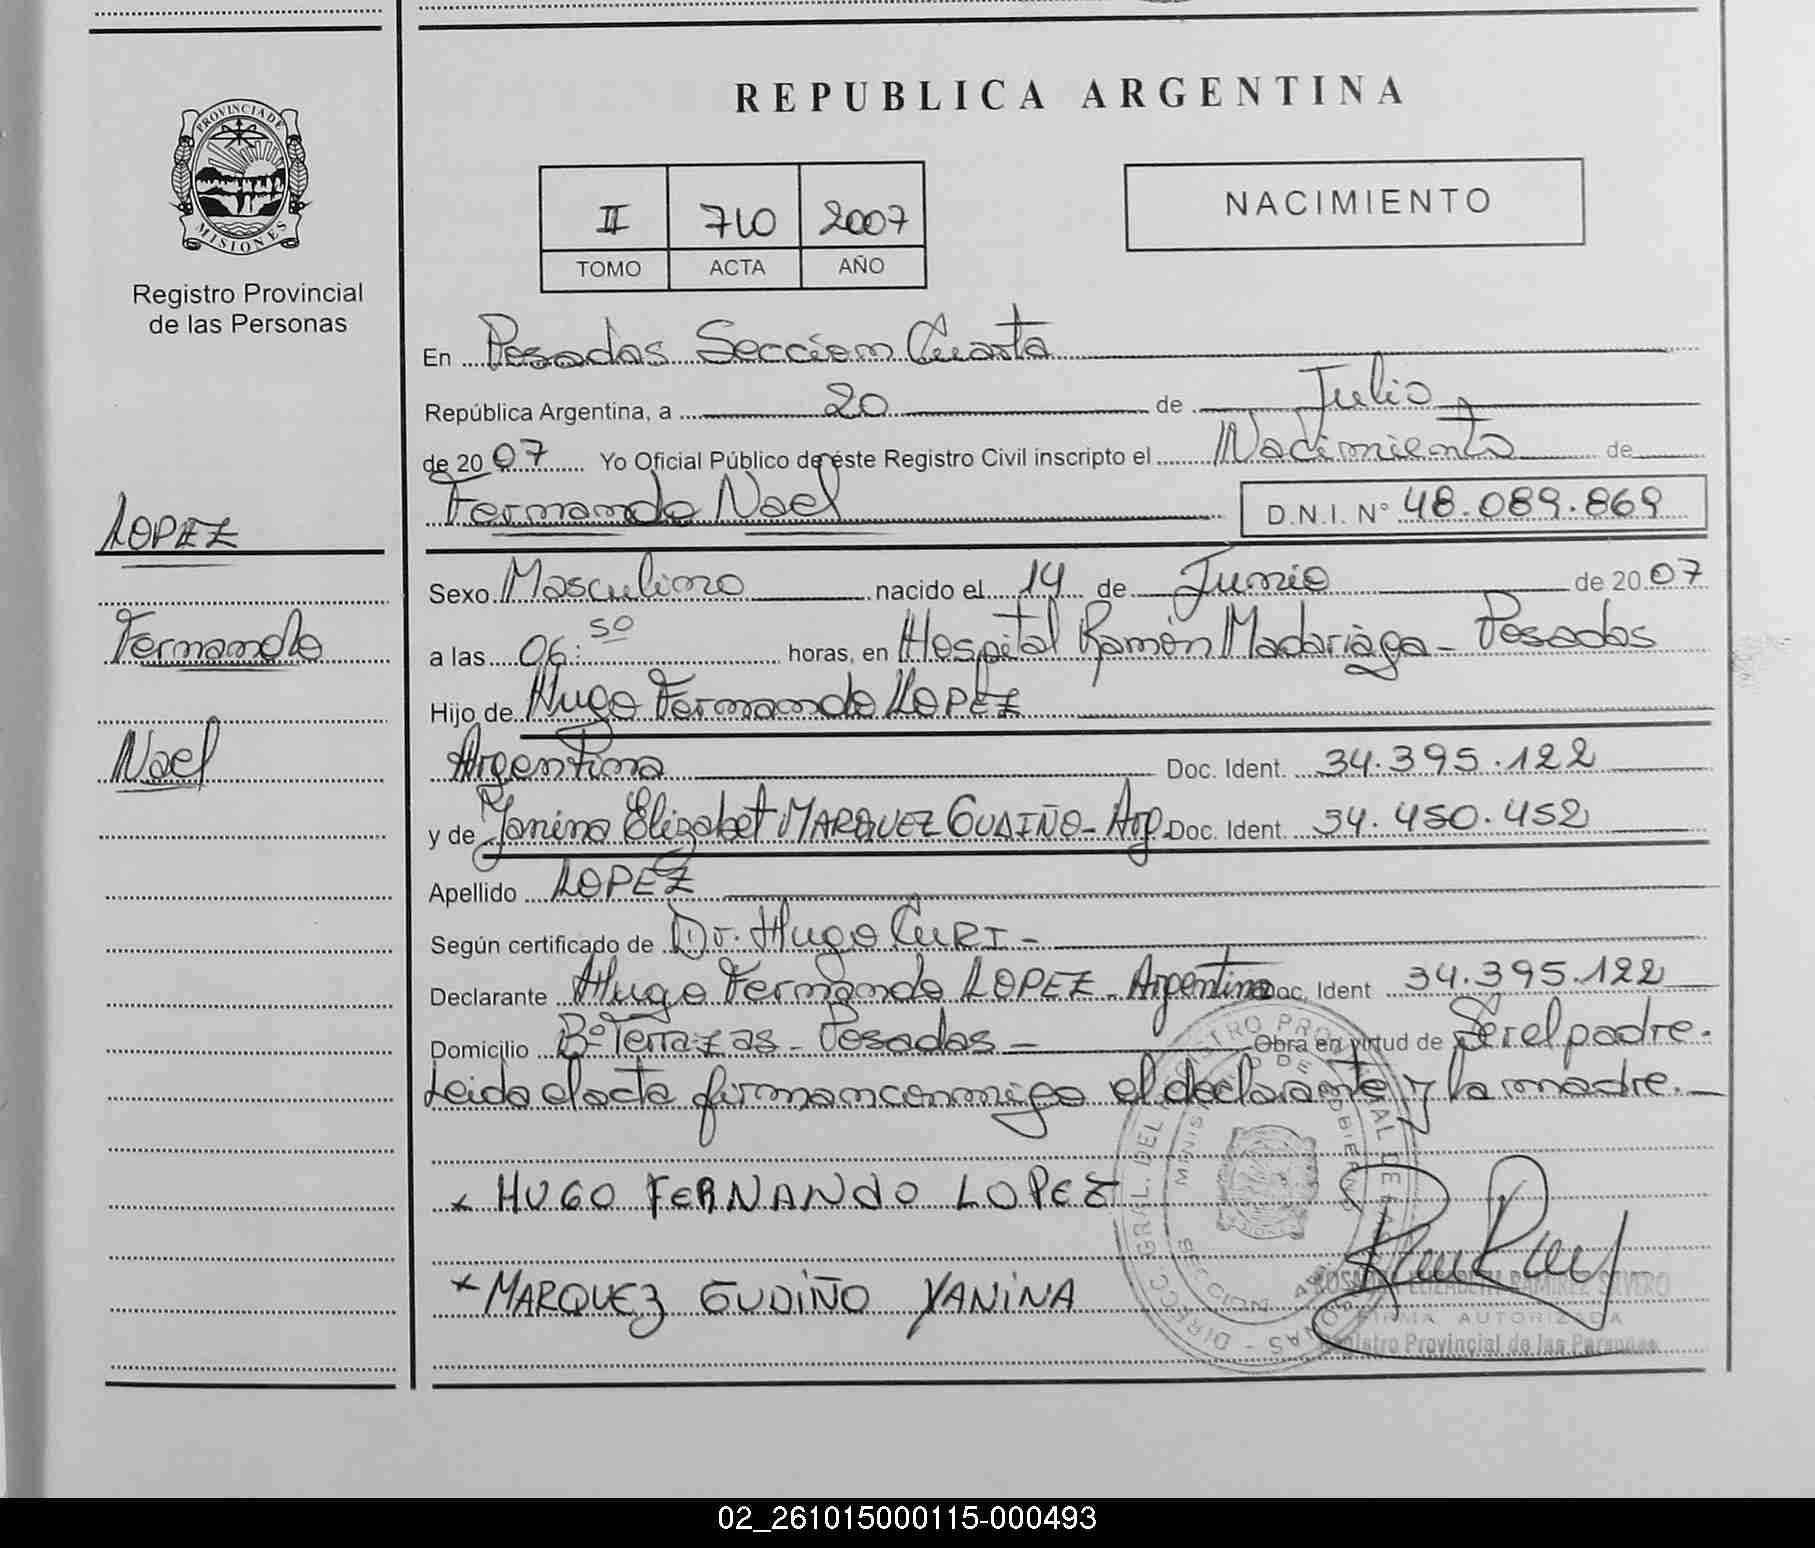 PROVINCIA DE
MISIONES
Registro Provincial
de las Personas
LOPEZ
Fernando
Nael
REPUBLICA ARGENTINA
II 710 2007
TOMO ACTA AÑO
NACIMIENTO
En Posadas Sección Cuarta
República Argentina, a 20 de Julio
de 2007 Yo Oficial Público de éste Registro Civil inscripto el Nacimiento de
Fernando Nael D.N.I. N° 48.089.869
Sexo Masculino nacido el 14 de Junio de 2007
a las 06:50 horas, en Hospital Ramón Madariaga - Posadas
Hijo de Hugo Fernando LOPEZ
Argentina Doc. Ident. 34.395.122
y de Yanina Elizabet MARQUEZ GUDIÑO - Arg. Doc. Ident. 34.450.452
Apellido LOPEZ
Según certificado de Dr. Hugo Curi -
Declarante Hugo Fernando LOPEZ - Argentina Doc. Ident 34.395.122
Domicilio B° Terrazas - Posadas - Obra en virtud de Ser el padre.
Leida el acta firman conmigo el declarante y la madre. -
x HUGO FERNANDO LOPEZ
x MARQUEZ GUDIÑO YANINA
ELIZABETH RAMIREZ SILVERO
FIRMA AUTORIZADA
Registro Provincial de las Personas
02_261015000115-000493